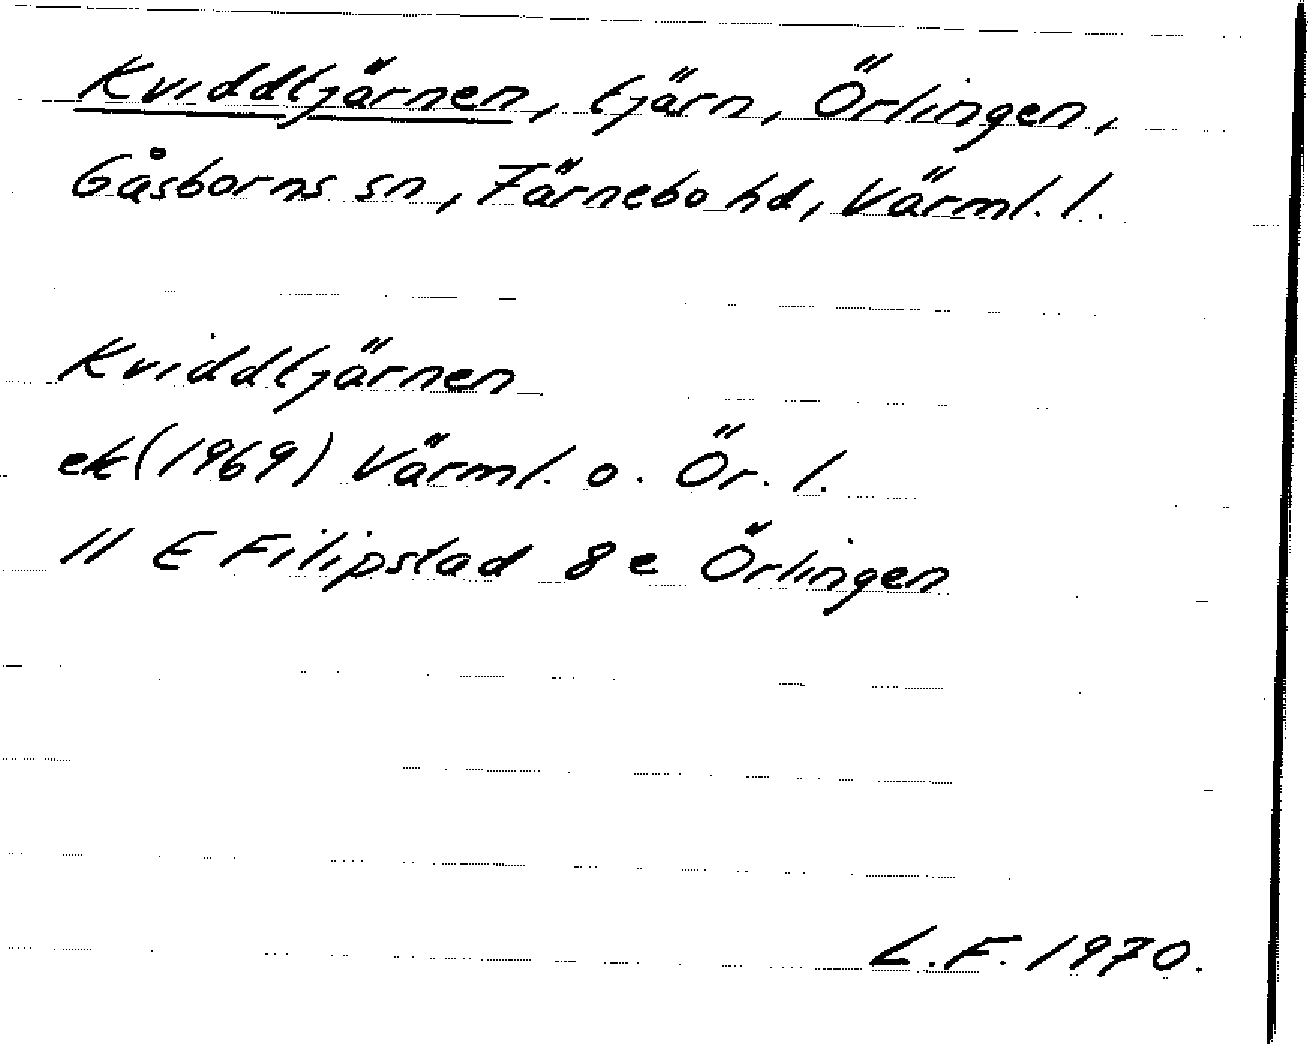 Kviddtjärnen, tjärn, Örlingen,
Gåsborns sn, Färnebo hd, Värml. l.
Kviddtjärnen
ek (1969) Värml. o. Ör. l.
11 E Filipstad 8e Örlingen
L.F. 1970.